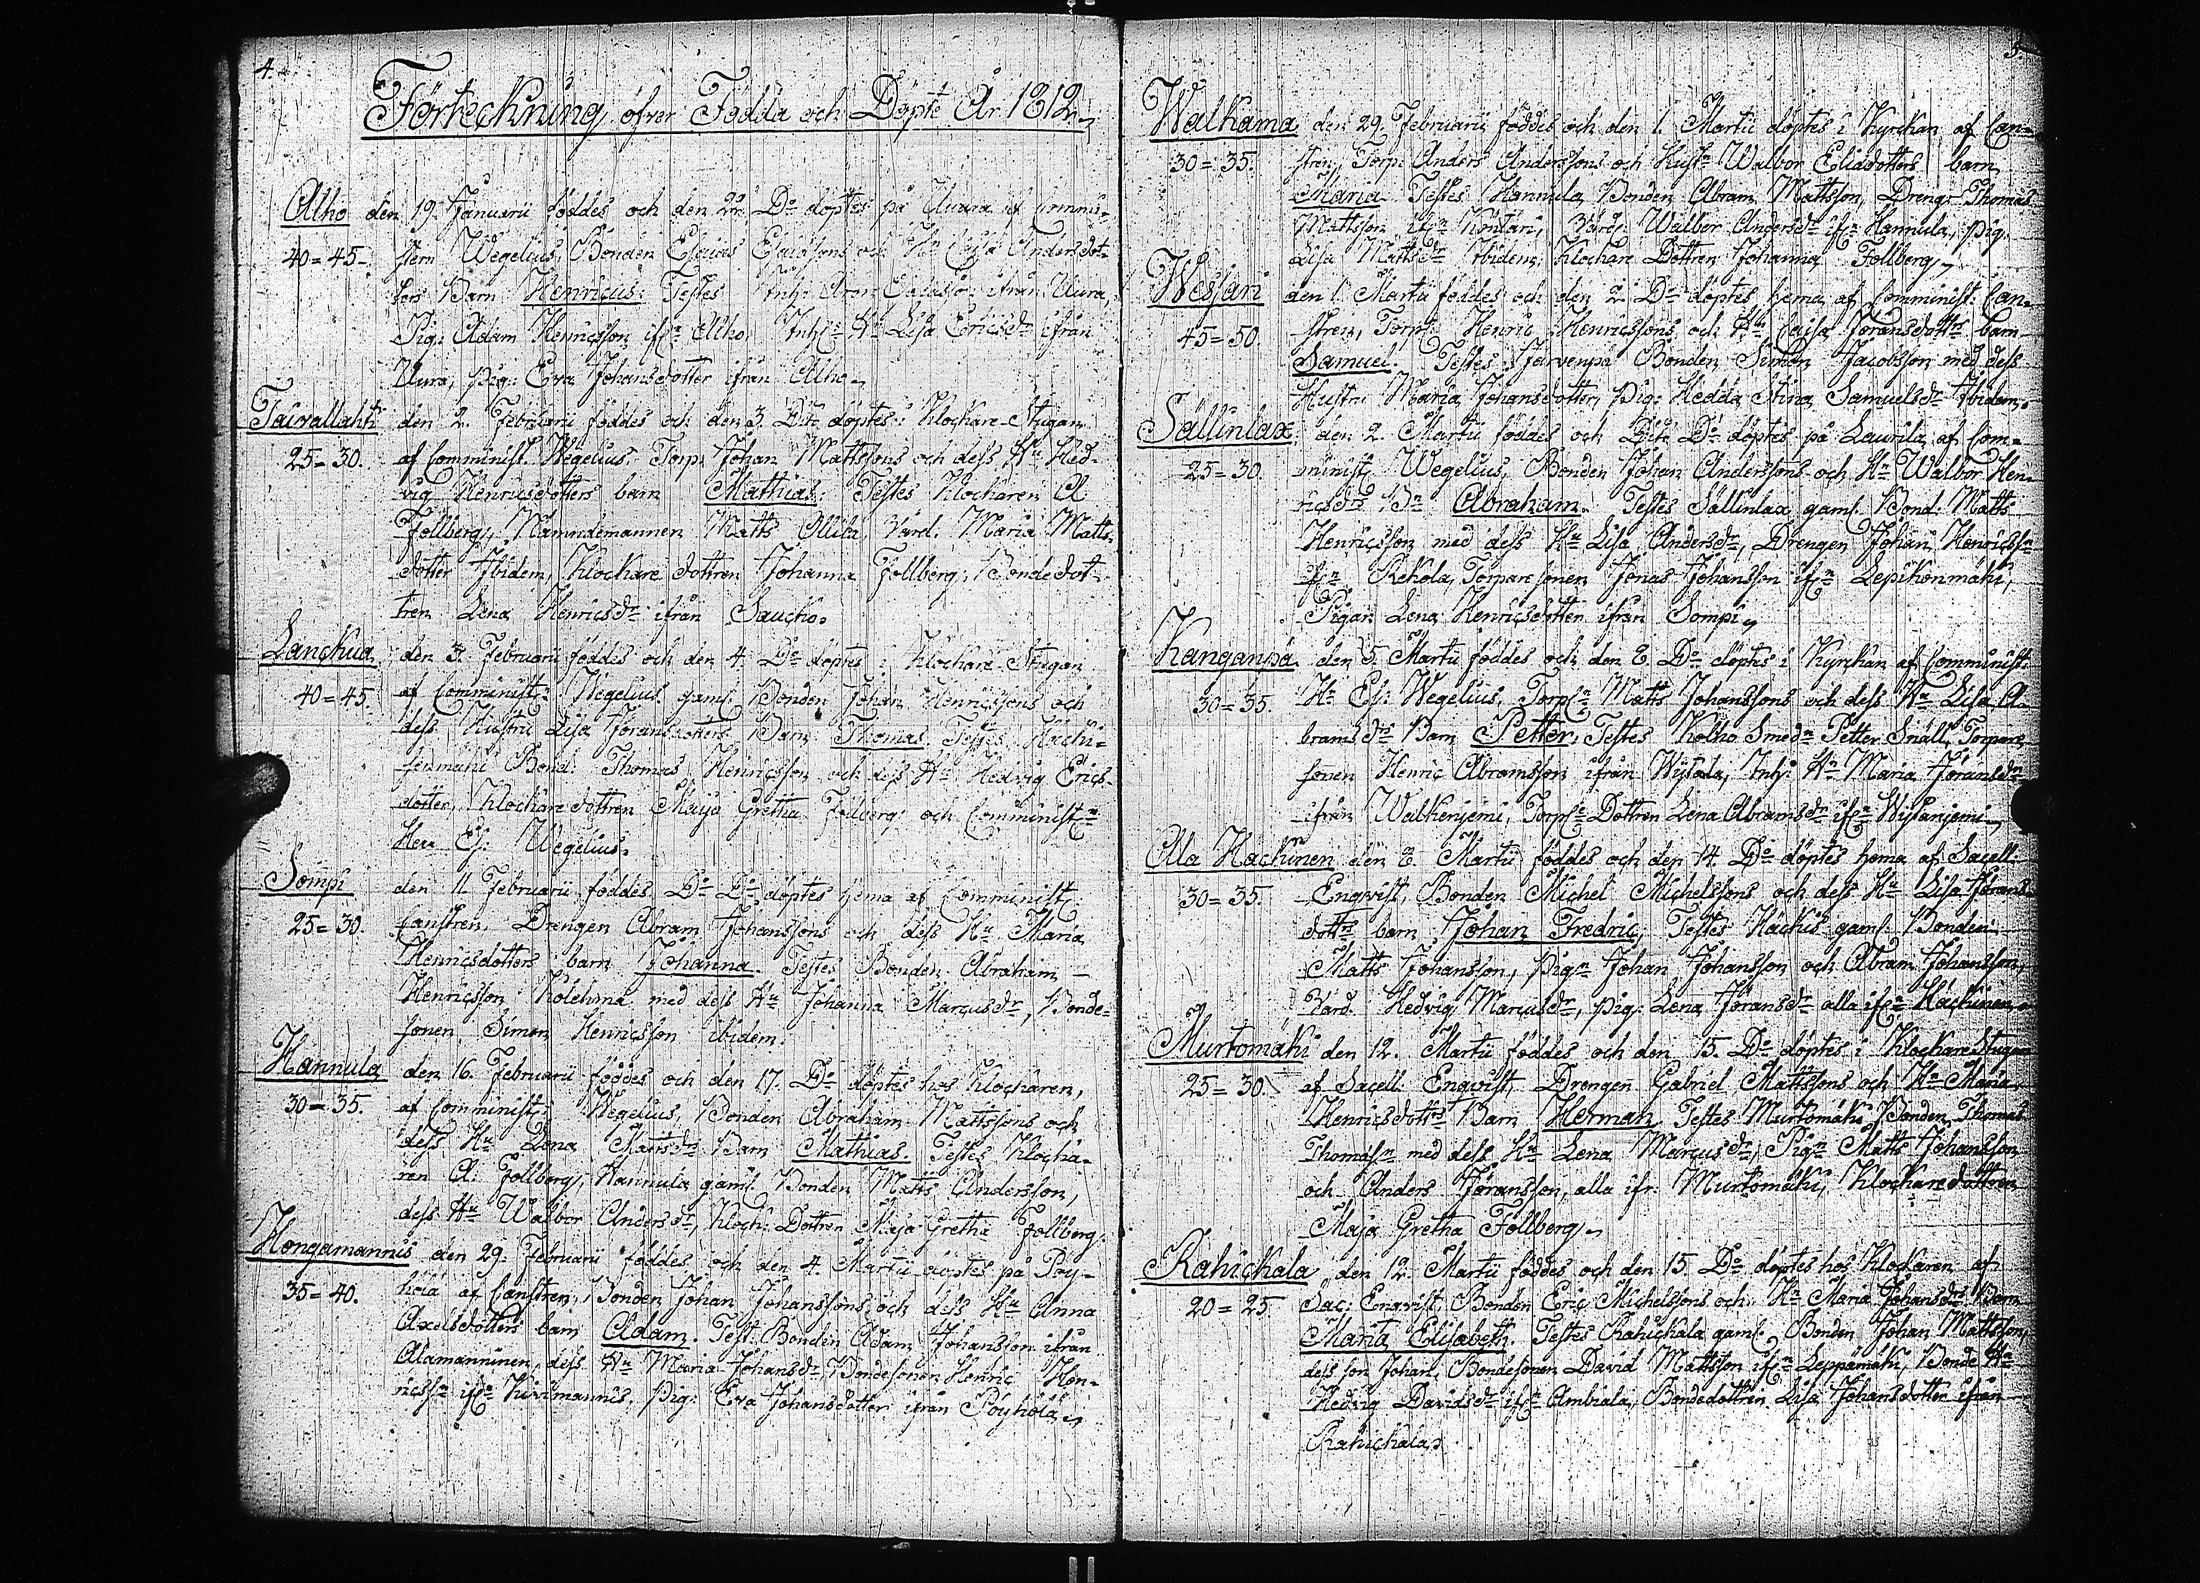 4.
Förteckning öfver Födda och Döpte År 1812.
Alho den 19. Januarii föddes och den 22. Do döptes på Uvara af Commi-
40=45. stern Wegelius, Bonden Esaias Esaiæsons och Hu Caisa Andersdot-
ters Barn Henricus: Testes Inh: Aron Esaiæson ifrån Uura,
Pig: Adam Henricsson ifrn Alho, Inh: Hu Lisa Ericsdr ifrån
Uura, pig: Eva Johansdotter ifrån Alho.
Taivallahti den 2. Februarii föddes och den 3. Dito döptes i Klockare-Stugan
25=30. af Comminist. Wegelius. Torp: Johan Mattssons och dess Hu Hed-
vig Henricsdotters barn Mathias: Testes Klockaren A
Follberg, Nämndemannen Matts Ollila, Värd. Maria Matts-
dotter Ibidem, Klockare dottren Johanna Follberg, Bondedot-
tren Lena Henricsdr ifrån Saucko.
Lanckua den 3. Februarii föddes och den 4. Do döptes i Klockare-Stugan
40=45. af Comminist: Wegelius gaml. Bonden Johan Henricssons och
dess Hustru Lisa Joransdotters Barn Thomas. Testes Hachi-
senmäki Bond: Thomas Henricsson och dess Hu Hedvig Erics-
dotter, Klockaredottren Maija Gretha Follberg och Comministrn
Herr Es: Wegelius.
Sompi den 11. Februarii föddes Do Do döptes hema af Comminist:
25=30. Canstren, Drengen Abram Johanssons och dess Hu Maria
Henricsdotters barn Johanna. Testes Bonden Abraham
Henricsson Kolehma med dess Hu Johanna Marcusdr, Bonde-
sonen Simon Henricsson ibidem.
Hannula den 16. Februarii föddes och den 17. Do döptes hos Klockaren,
30=35. af Comminist: Wegelius, Bonden Abraham Mattssons och
dess Hu Lena Mattsdrs Barn Mathias. Testes Klocka-
ren A: Follberg, Hannula gaml. Bonden Matts Andersson,
dess Hu Walbor Andersdr, Klock: Dottren Maja Gretha Follberg.
Hongamannis den 29. Februarii föddes och den 4. Martii döptes på Pöy-
35=40. hölä af Canstren, Bonden Johan Johanssons och dess Hu Anna
Axelsdotters barn Adam. Test: Bonden Adam Johansson ifrån
Alamanninen, dess Hu Maria Johansdr Bondesonen Henric Hen-
ricssn ifrn Kivimannis, pig: Eva Johansdotter ifrån Pöyhölä.
5.
Walkama den 29. Februarii föddes och den 1. Martii döptes i Kyrckan af Can-
30=35. stren, Torp: Anders Anderssons och Hustr Walbor Eliædotters barn
Maria. Testes Hannula Bonden Abram Mattsson, Dreng: Thomas
Mattsson ifrn Köntäri, Värd: Walbor Andersdr ifrn Hannula, pig:
Lisa Mattsdr Ibidem, Klockare Dottren Johanna Follberg.
Wessari den 1. Martii föddes och den 2. Do döptes hema af Comminist: Can-
45=50. stren, Torp: Henric Henricssons och Hu Caisa Joransdottrs barn
Samuel. Testes Järvenpä Bonden Simon Jacobsson med dess
Hustru Maria Johansdotter, pig: Hedda Stina Samuelsdr Ibidem.
Sällinlax den 2. Martii föddes och Dito Do döptes på Laurila af Com-
25=30. minist Wegelius, Bonden Johan Anderssons och Hu Walbor Hen-
ricsdrs Bn Abraham. Testes Sällinlax gaml. Bond: Matts
Henricsson med dess Hu Lisa Andersdr, Drengen Johan Henricssn
ifrn Rekola, Torparesonen Jonas Johansson ifrn Lepikonmäki,
Pigan Lena Henricsdotter ifrån Sompi.
Kanganpä den 5. Martii föddes och den 8. Do döptes i Kyrckan af Comminist:
30=35. Hr Es: Wegelius, Torprn Matts Johanssons och dess Hu Lisa A-
bramsdrs Barn Petter, Testes Kolho Smedn Petter Snäll, Torpare
sonen Henric Abramsson ifrån Wysala, Inh: Hu Maria Joransdr
ifrån Walkenjemi, Torp: Dottren Lena Abramsdr ifrn Wysanjemi.
Ala Hachinen den 8. Martii föddes och den 14. Do döptes hema af Sacell:
30=35. Engvist, Bonden Michel Michelssons och dess Hu Lisa Jorans-
dottrs barn Johan Fredric, Testes Hachis gaml. Bonden
Matts Johansson, pign Johan Johansson och Abram Johansson,
Värd. Hedvig Marcusdr, pig: Lena Joransdr alla ifrn Hachinen.
Murtomäki den 12. Martii föddes och den 15. Do döptes i Klockare Stugan
25=30. af Sacell: Engvist, Drengen Gabriel Mattssons och Hu Maria
Henricsdottrs Barn Herman. Testes Murtomäki Bonden Thomas
Thomassn med dess Hu Lena Marcusdr, Pign Matts Johansson
och Anders Joransson, alla ifr: Murtomäki, Klockaredottren
Maja Gretha Follberg.
Rahickala den 12. Martii föddes och den 15. Do döptes hos Klockaren af
20=25. Sac: Engvist, Bonden Eric Michelssons och Hu Maria Johansdrs Barn
Maria Elisabeth. Testes Rahickala gaml. Bonden Johan Mattsson,
dess son Johan, Bondesonen David Mattsson ifrn Leppämäki, Bonde Hu
Hedvig Davidsdr ifrn Ambiala, Bondedottren Lisa Johansdotter ifrån
Rahickala.